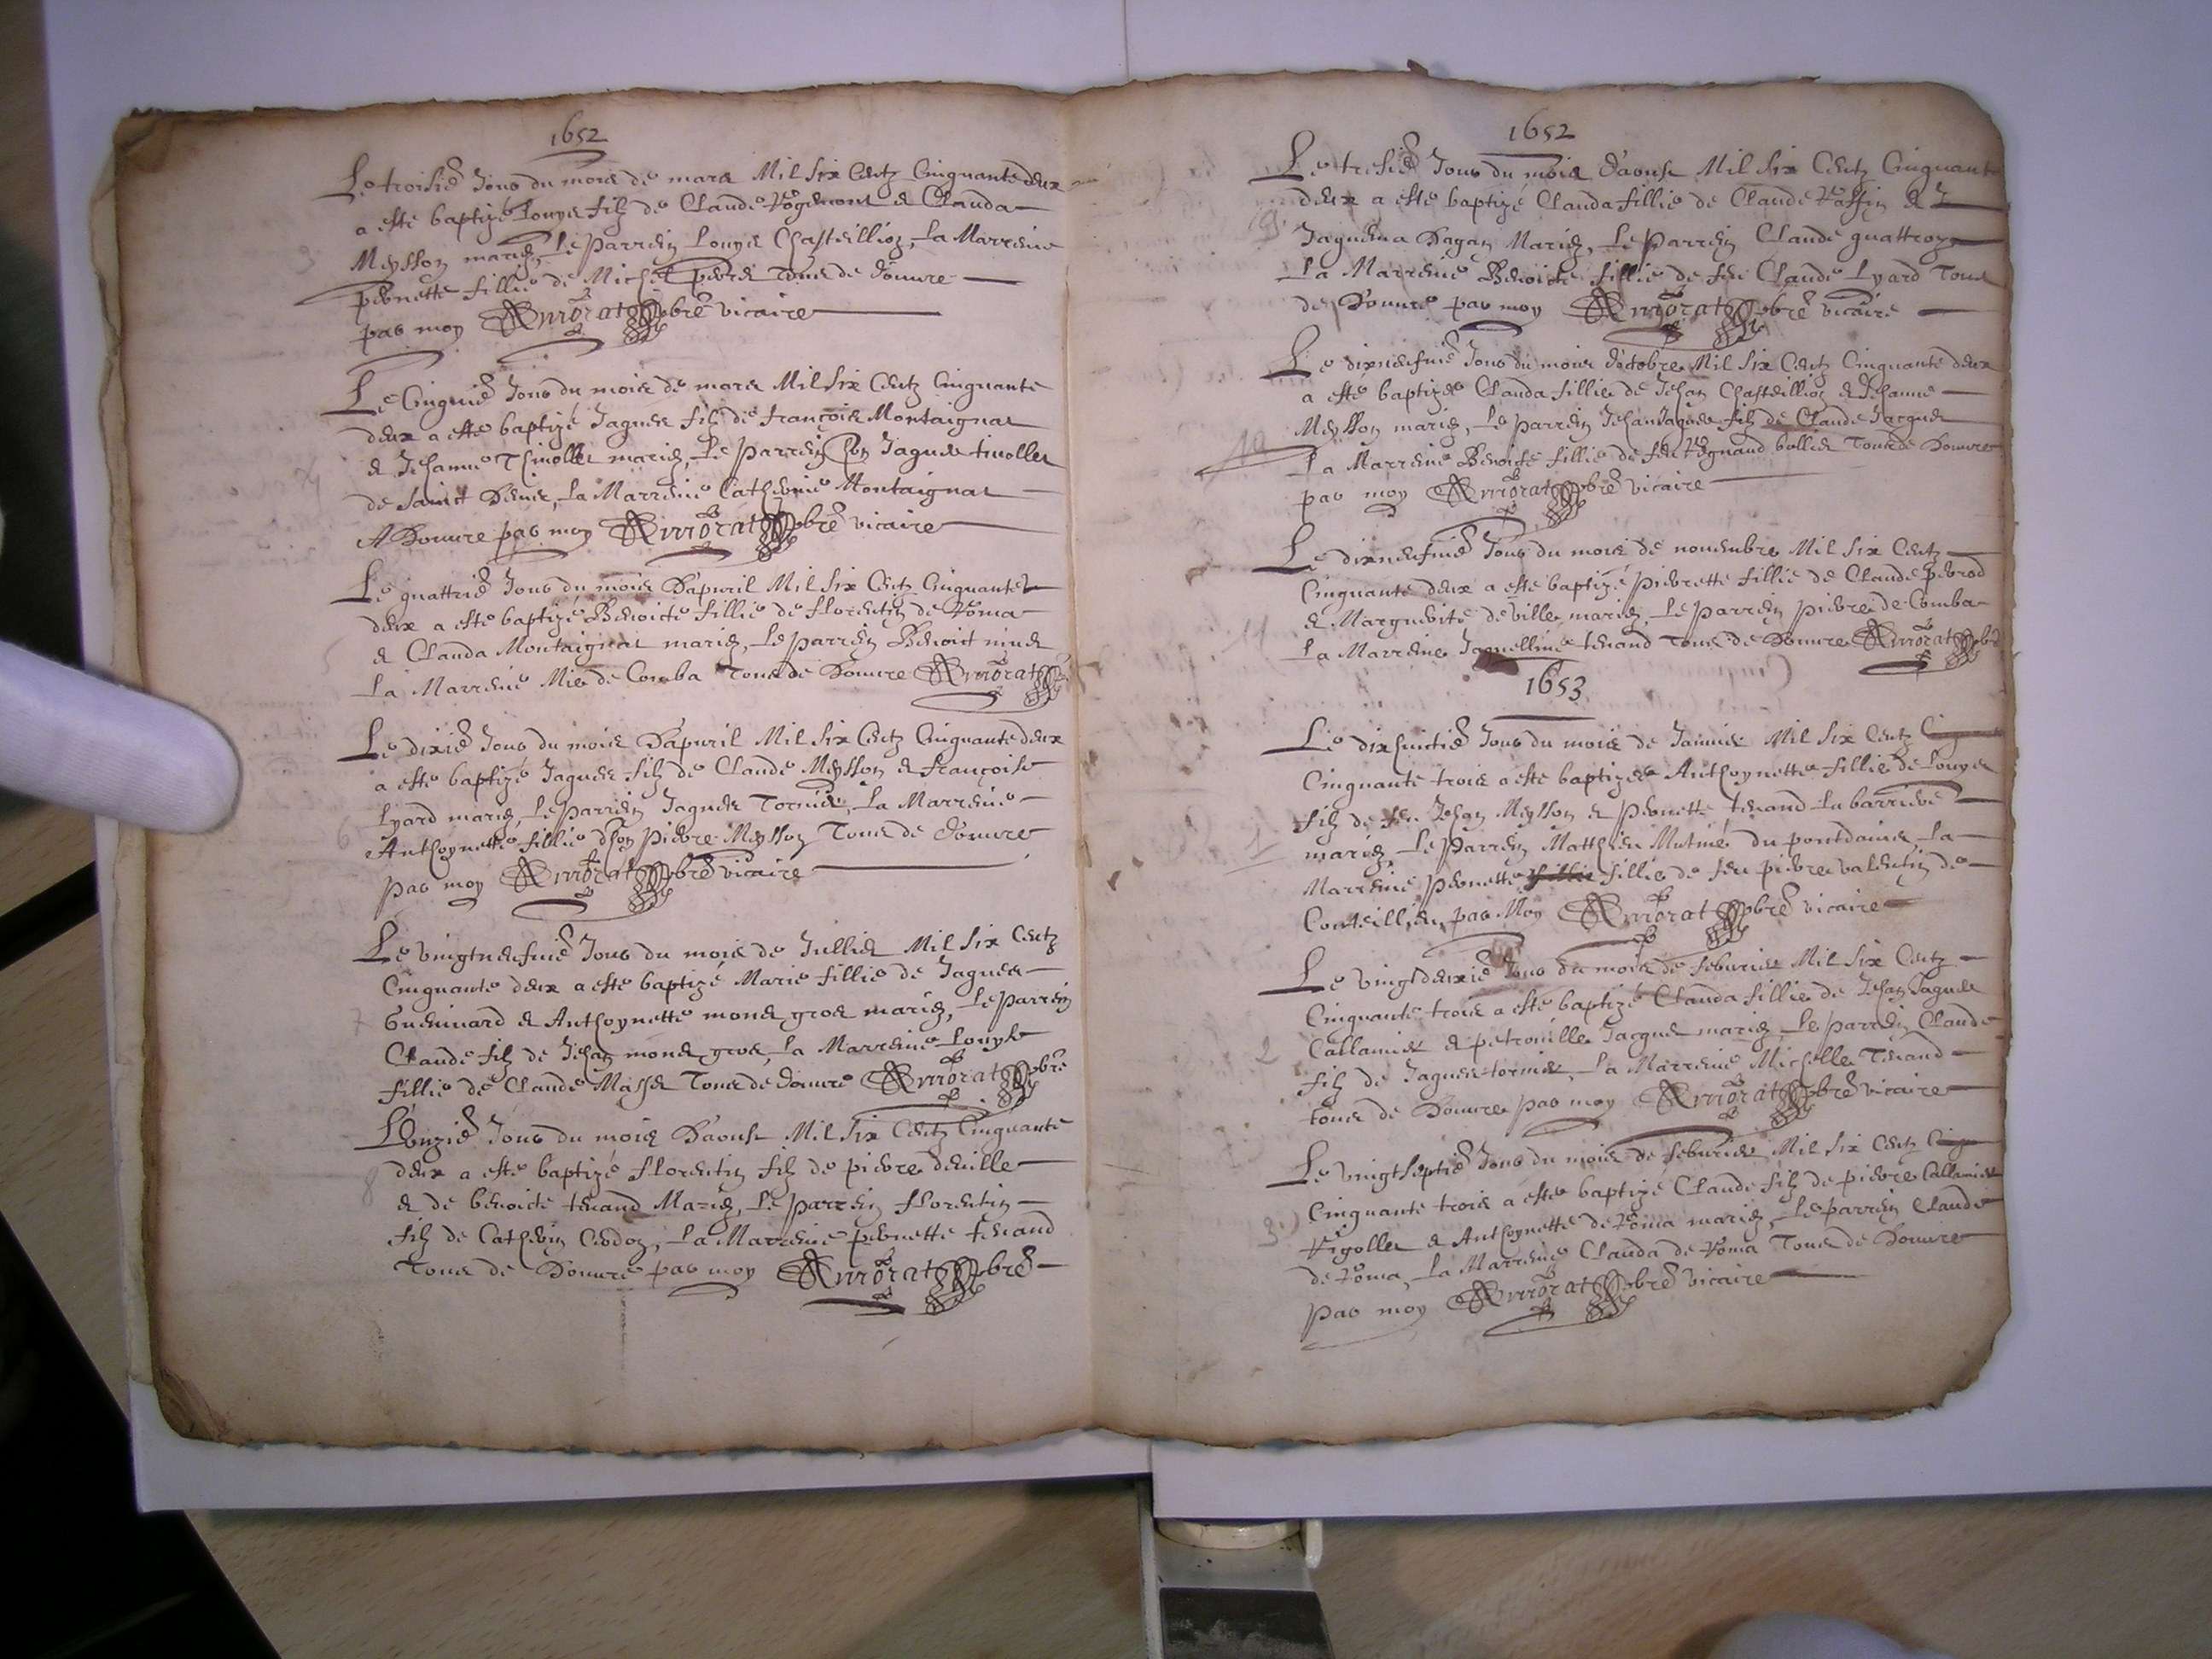 1652
Le troisie Jour du mois de mars Mil Six Centz Cinquante deux
a esté baptizé Louys filz de Claude Rogemont et Clauda
3 Meysson mariez, Le parrein Louys Chasteillion, La Marreine
pernette fillie de Michel Tous de Douvre
par moy Armorat pbre vicaire
Le Cinquie Jour du mois de mars Mil Six Centz Cinquante
deux a esté baptizé Jaques filz de françois Montaignat
4 et Jehanne Thinollet mariez, Le parrein hon Jaques tinollet
de Sainct Denis, La Marreine Catherine Montaignat
A Douvre par moy Armorat pbre vicaire
Le quattrie Jour du mois D'apvril Mil Six Centz Cinquante
deux a esté baptizé Benoicte fillie de florentin de Roma
5 et Clauda Montaignat mariez, Le parrein Benoict
La Marreine Mie de Comba Tous de Douvre Armorat
Le dixie Jour du mois D'apvril Mil Six Centz Cinquante deux
a esté baptizé Jaques filz de Claude Meysson et françoise
6 Lyard mariez, Le parrein Jaques Tornier, La Marreine
Anthoynette fillie d'hon pierre Meysson Tous de Douvre
par moy Armorat pbre vicaire
Le vingtneufuie Jour du mois de Jullies Mil Six Centz
Cinquante deux a esté baptizé Marie fillie de Jaques
7 Guenivard et Anthoynette mons gros mariez, Le parrein
Claude filz de Jehan mons gros, La Marreine Louyse
fillie de Claude Tous de Douvre Armorat pbre
L'Onzie Jour du mois D'aoust Mil Six Centz Cinquante
deux a esté baptizé florentin filz de pierre deville
8 et de benoicte tenand Mariez, Le parrein florentin
filz de Catherin, La Marreine pernette tenand
Tous de Douvre par moy Armorat pbre
1652
Le tresie Jour du mois D'aoust Mil Six Centz Cinquante
deux a esté baptizé Clauda fillie de Claude Raffin et J
9 Jaquema Dagan Mariez, Le parrein Claude quattroz
La Marreine Benoicte fillie de feu Claude Lyard Tous
de Douvre par moy Armorat pbre vicaire
Le dixneufuie Jour du mois d'octobre Mil Six Centz Cinquante deux
a esté baptizée Clauda fillie de Jehan Chasteillion et Jehanne
10 Meysson mariez, Le parrein Jehan Jaques filz de Claude Jacques
La Marreine Benoiste fillie de feu Regnaud bollier Tous de Douvre
par moy Armorat pbre vicaire
Le dixneufuie Jour du mois de novembre Mil Six Centz
Cinquante deux a esté baptizé pierrette fillie de Claude perrod
11 et Marguerite deville mariez, Le parrein pierre de Comba
La Marreine Jaquelline tenand Tous de Douvre Armorat pbre
1653
Le dixhuictie Jour du mois de Janvier Mil Six Centz
Cinquante trois a esté baptizée Anthoynette fillie de Louys
1 filz de feu Jehan Meysson et pernette tenand La barriere
mariez, Le parrein Matthieu Mutiné du pontdains, La
Marreine pernette fillie de feu pierre valentin de
par Moy Armorat pbre vicaire
Le vingtdeuxie Jour du mois de febvrier Mil Six Centz
Cinquante trois a esté baptizé Clauda fillie de Jehan Jaques
2 Callamier et petronille Jacques mariez, Le parrein Claude
filz de Jaques tornier, La Marreine Michelle Tenand
tous de Douvre par moy Armorat pbre vicaire
Le vingtseptie Jour du mois de febvrier Mil Six Centz
Cinquante trois a esté baptizé Claude filz de pierre Callamier
3 Rigollet et Anthoynette de Roma mariez, Le parrein Claude
de Roma, La Marreine Clauda de Roma Tous de Douvre
par moy Armorat pbre vicaire